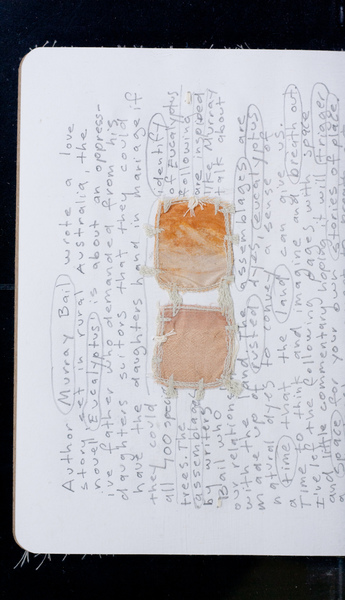 Author Murray Bail wrote a love
story set in rural Australia, the
novel 'Eucalyptus' is about an oppress-
ive father who demanded from his
daughters suitors that they could
have the daughters hand in mariage if
they could identify
all 400 of Eucalyptus
trees. The following
assemblage are inspired
by writers like Murray
Bail who talk about
our relation
with the The assemblages are
made up of rusted dyes, eucalyptus
natural dyes to convey a sense of
a time that the land can give us.
Time to think and imagine and breath out
I've left the following pages with space
and little commentary hoping it will trigger
a space for your own stories of place